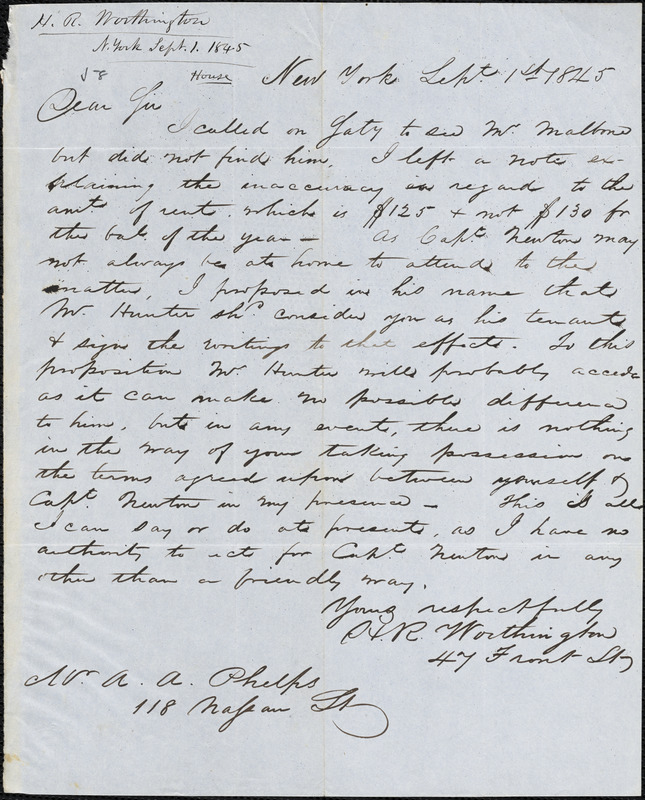 H. R. Worthington
N. York Sept. 1. 1845
House
New York Sept. 1st 1845
Dear Sir
I called on Saty to see Mr. Malbone
but did not find him. I left a note ex-
plaining the inaccuracy in regard to the
amt. of rent. which is $125 & not $130 for
the bal. of the year — As Capt. Newton may
not always be at home to attend to the
matter, I proposed in his name that
Mr. Hunter shd. consider you as his tenant
& sign the writings to that effect. To this
proposition Mr Hunter will probably accede
as it can make no possible difference
to him, but in any event, there is nothing
in the way of your taking possession on
the terms agreed upon between yourself &
Capt. Newton in my presence — This is all
I can say or do at present, as I have no
authority to act for Capt. Newton in any
other than a friendly way.
Yours respectfully
H. R. Worthington
47 Front St
Mr A. A. Phelps
118 Nassau St